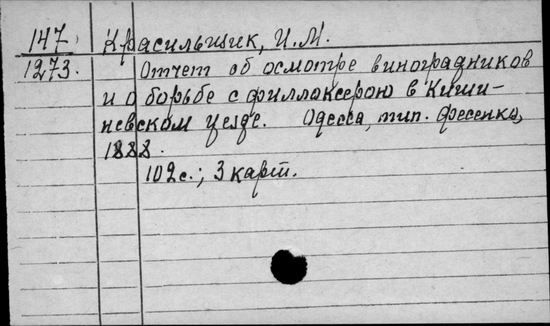 147 Красильщик, И.М.
1273. Отчет об осмотре виноградников
и о борьбе с филлоксерою в Киши-
невском уезде. Одесса, тип. Фесенко,
1888.
102с.; 3 карт.